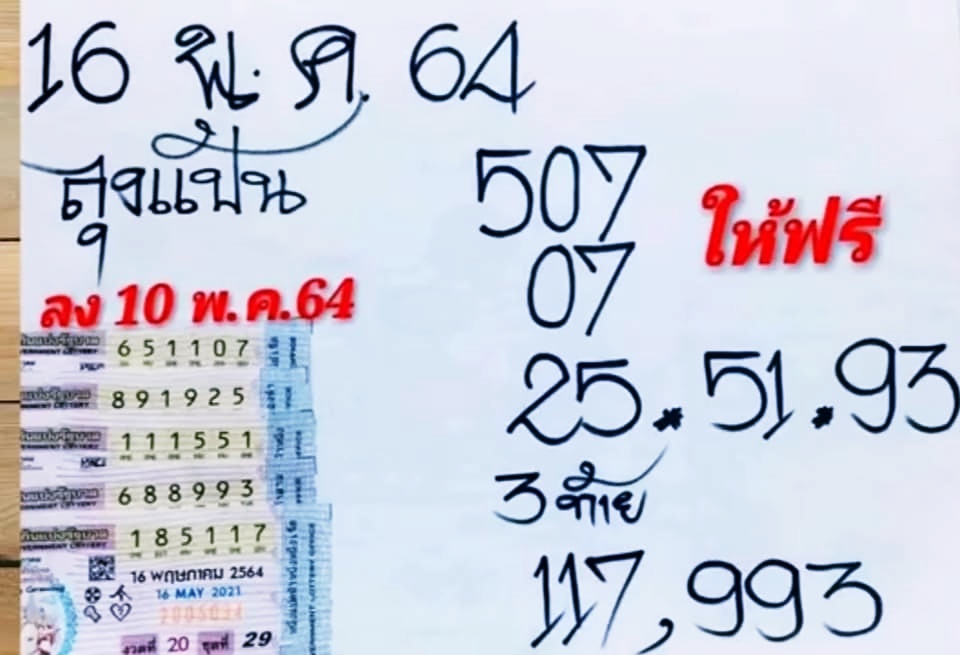 16 พ.ค. 64
ลุงแป้น
507
ให้ฟรี
07
ลง 10 พ.ค.64
25.51.93
3 ท้าย
117,993
651107
891925
111551
688993
185117
16 พฤษภาคม 2564
16 MAY 2021
งวดที่ 20 ชุดที่ 29